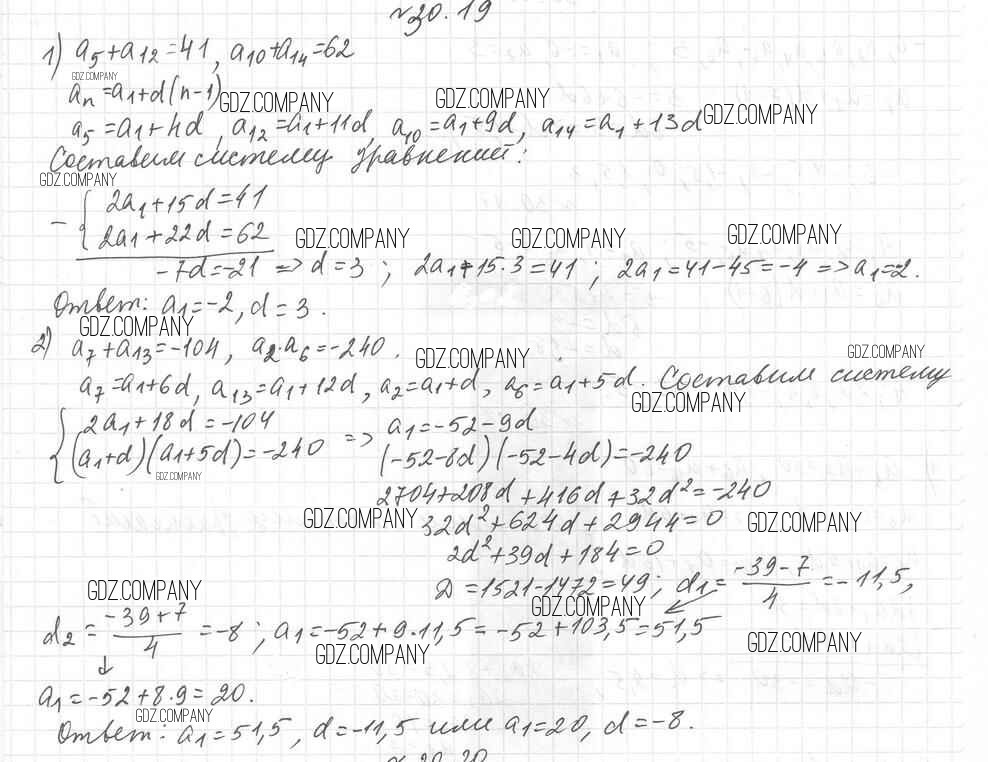 №30.19
1) a₅+a₁₂=41, a₁₀+a₁₄=62
GDZ.COMPANY
aₙ=a₁+d(n-1) GDZ.COMPANY GDZ.COMPANY
a₅=a₁+4d, a₁₂=a₁+11d, a₁₀=a₁+9d, a₁₄=a₁+13d GDZ.COMPANY
Составим систему уравнений:
GDZ.COMPANY
- { 2a₁+15d=41
2a₁+22d=62 GDZ.COMPANY GDZ.COMPANY GDZ.COMPANY
-7d=-21 => d=3; 2a₁+15·3=41; 2a₁=41-45=-4 => a₁=-2.
Ответ: a₁=-2, d=3.
GDZ.COMPANY
2) a₇+a₁₃=-104, a₂·a₆=-240.
GDZ.COMPANY GDZ.COMPANY
a₇=a₁+6d, a₁₃=a₁+12d, a₂=a₁+d, a₆=a₁+5d. Составим систему
GDZ.COMPANY
{ 2a₁+18d=-104 => a₁=-52-9d
(a₁+d)(a₁+5d)=-240 (-52-8d)(-52-4d)=-240
GDZ.COMPANY
2704+208d+416d+32d²=-240
GDZ.COMPANY 32d²+624d+2944=0 GDZ.COMPANY
2d²+39d+184=0
D=1521-1472=49; d₁=(-39-7)/4=-11,5,
GDZ.COMPANY GDZ.COMPANY
d₂=(-39+7)/4=-8; a₁=-52+9·11,5=-52+103,5=51,5
GDZ.COMPANY GDZ.COMPANY
a₁=-52+8·9=20.
GDZ.COMPANY
Ответ: a₁=51,5, d=-11,5 или a₁=20, d=-8.